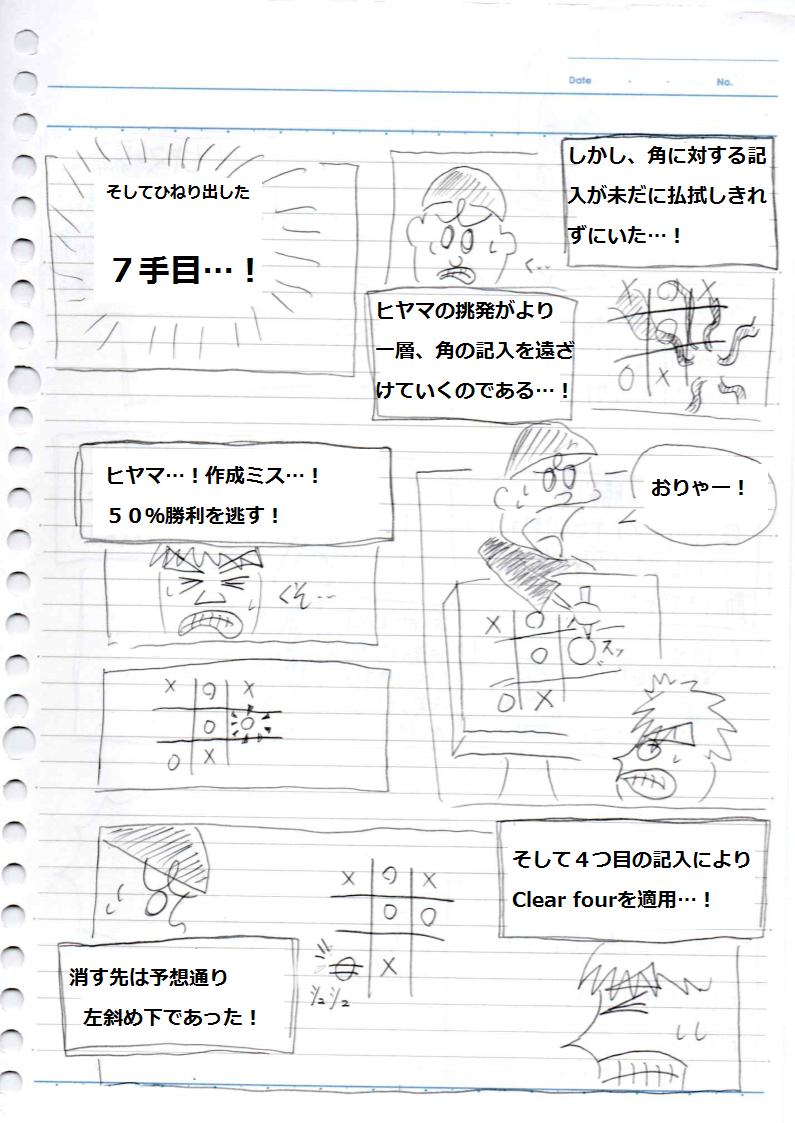 Date ・ ・ No.
しかし、角に対する記
入が未だに払拭しきれ
ずにいた…！
く…
ヒヤマの挑発がより
一層、角の記入を遠ざ
けていくのである…！
X O X
O
O X
そしてひねり出した
７手目…！
おりゃー！
X O X
O O
O X
スッ
ヒヤマ…！作成ミス…！
５０％勝利を逃す！
くそ…
X O X
O O
O X
そして４つ目の記入により
Clear fourを適用…！
X O X
O O
O X
消す先は予想通り
左斜め下であった！